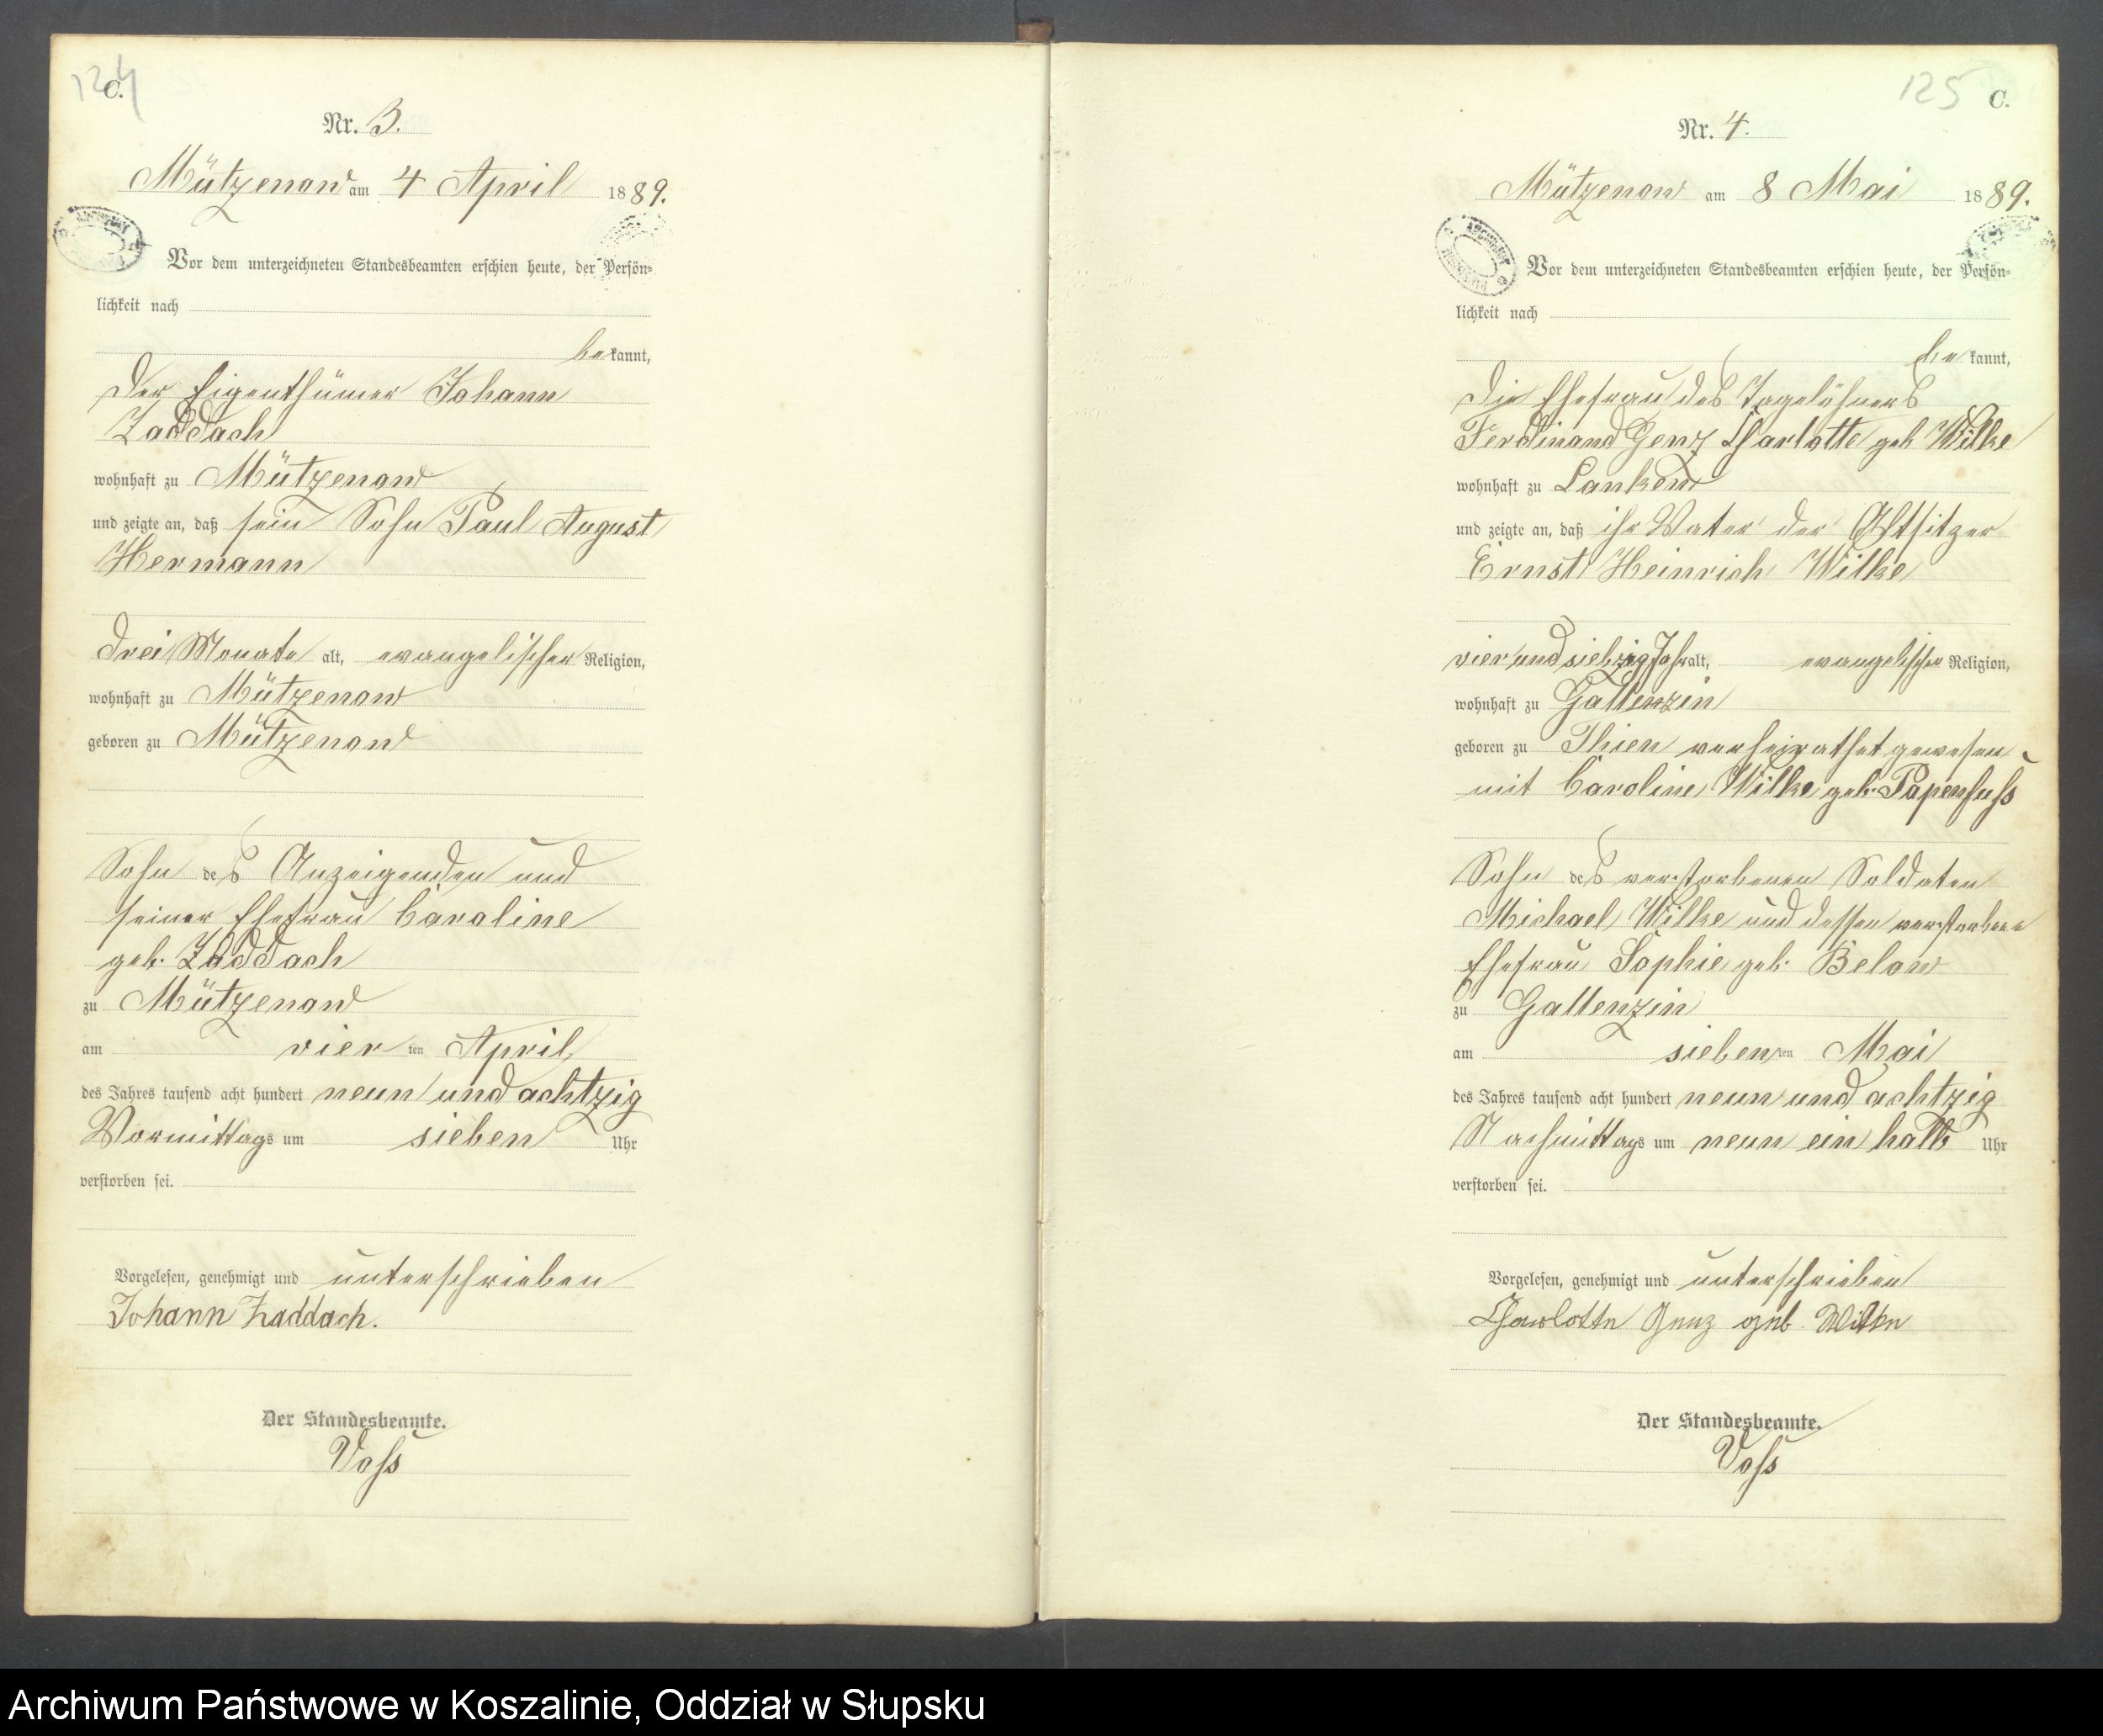 124
C.
Nr. 3.
Mützenow am 4 April 1889.
Vor dem unterzeichneten Standesbeamten erschien heute, der Persön=
lichkeit nach
bekannt,
der Eigenthümer Johann
Zaddach
wohnhaft zu Mützenow
und zeigte an, daß sein Sohn Paul August
Hermann
drei Monate alt, evangelischer Religion,
wohnhaft zu Mützenow
geboren zu Mützenow
Sohn des Anzeigenden und
seiner Ehefrau Caroline
geb. Zaddach
zu Mützenow
am vierten April
des Jahres tausend acht hundert neun und achtzig
Vormittags um sieben Uhr
verstorben sei.
Vorgelesen, genehmigt und unterschrieben
Johann Zaddach.
Der Standesbeamte.
Voss
125
C.
Nr. 4.
Mützenow am 8 Mai 1889.
Vor dem unterzeichneten Standesbeamten erschien heute, der Persön=
lichkeit nach
bekannt,
die Ehefrau des Tagelöhners
Ferdinand Genz Charlotte geb Wilke
wohnhaft zu Lanken
und zeigte an, daß ihr Vater der Altsitzer
Ernst Heinrich Wilke
vier und siebzig Jahr alt, evangelischer Religion,
wohnhaft zu Gallenzin
geboren zu Thien verheirathet gewesen
mit Caroline Wilke geb. Papenfuss
Sohn des verstorbenen Soldaten
Michael Wilke und dessen verstorbene
Ehefrau Sophie geb. Below
zu Gallenzin
am siebenten Mai
des Jahres tausend acht hundert neun und achtzig
Nachmittags um neun ein halb Uhr
verstorben sei.
Vorgelesen, genehmigt und unterschrieben
Charlotte Genz geb. Wilke
Der Standesbeamte.
Voss
Archiwum Państwowe w Koszalinie, Oddział w Słupsku